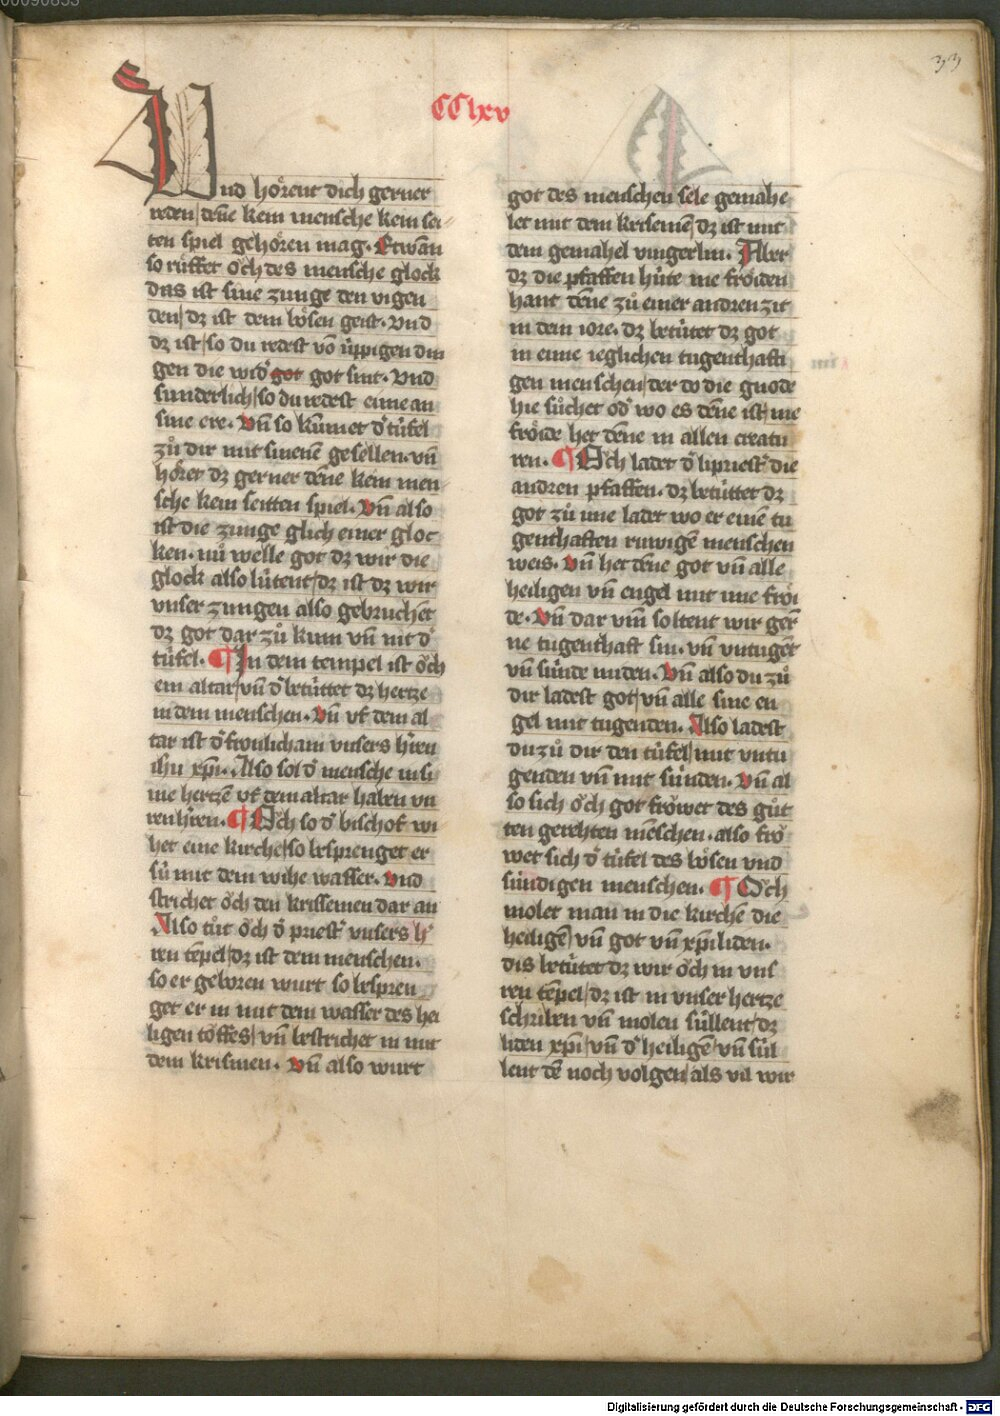 00090853
33
CClxv
Und hoͤrent dich gerner
reden / deñe kein mensche kein sei
ten spiel gehoͤren mag. Etwañ
so ruͤffet oͮch des mensche glock
das ist sine zunge den vigen
den / dz ist dem boͤsen geist. Vnd
dz ist / so du redest vō úppigen din
gen die wid̕ got got sint. Vnd
sunderlich / so du redest eime an
sine ere. Vn̄ so kūmet d̕ túfel
zuͦ dir mit sinenē gesellen. vn̄
hoͤret dz gerner dēne kein men
sche kein seitten spiel. Vn̄ also
ist die zunge glich einer gloc
ken. nuͦ welle got dz wir die
glock also lútent / dz ist dz wir
vnser zungen also gebruchēt
dz got dar zuͦ kum vn̄ nit d̕
túfel. ¶ In dem tempel ist oͮch
ein altar / vn̄ d̕ betúttet dz hertze
in dem menschen. Vn̄ vf dem al
tar ist d̕ fronlicham vnsers h̕ren
ihū xp̄i. Also sol d̕ mensche in si
me hertzē vf dem altar haben vn
ren h̕ren. ¶ Oͮch so d̕ bischof wi
het eine kirche / so besprenget er
sú mit dem wihe wasser. Vnd
strichet oͮch den krissemen dar an
Also tuͦt oͮch d̕ priest̕ vnsers h̕
ren tēpel / dz ist dem menschen.
so er geboren wurt so bespren
get er in mit dem wasser des hei
ligen toͮffes / vn̄ bestrichet in mit
dem krismen. Vn̄ also wurt
got des menschen sele gemahe
let mit dem krisemē / dz ist mit
dem gemahel vingerlin. Aber
dz die pfaffen húte me froͤiden
hant dēne zuͦ einer andren zit
in dem iore. dz betútet dz got
in eime ieglichen tugenthafti
gen menschen / der do die gnode
hie suͤchet od̕ wo es dēne ist / me
froͤide het dēne in allen creatu
ren. ¶ Oͮch ladet d̕ lúpriest̕ die
andren pfaffen. dz betúttet dz
got zuͦ ime ladet wo er einē tu
genthaften ruwigē menschen
weis. Vn̄ het dēne got vn̄ alle
heiligen vn̄ engel mit ime froͤi
de. Vn̄ dar vm̄ soltent wir ger
ne tugenthaft sin. vn̄ vntugēt
vn̄ súnde miden. Vn̄ also du zuͦ
dir ladest got / vn̄ alle sine en
gel mit tugenden. Also ladest
du zuͦ dir den túfel / mit vntu
genden vn̄ mit súnden. Vn̄ al
so sich oͮch got froͤwet des guͦt
ten gerehten mēschen. also froͤ
wet sich d̕ túfel des boͤsen vnd
súndigen menschen. ¶ Oͮch
molet man in die kirchē die
heiligē / vn̄ got vn̄ xp̄i liden.
dis betútet dz wir oͮch in vns
ren tēpel / dz ist in vnser hertze
schriben vn̄ molen súllent / dz
liden xp̄i / vn̄ d̕ heiligē / vn̄ súl
lent dē noch volgen / als vil wir
Digitalisierung gefördert durch die Deutsche Forschungsgemeinschaft - DFG